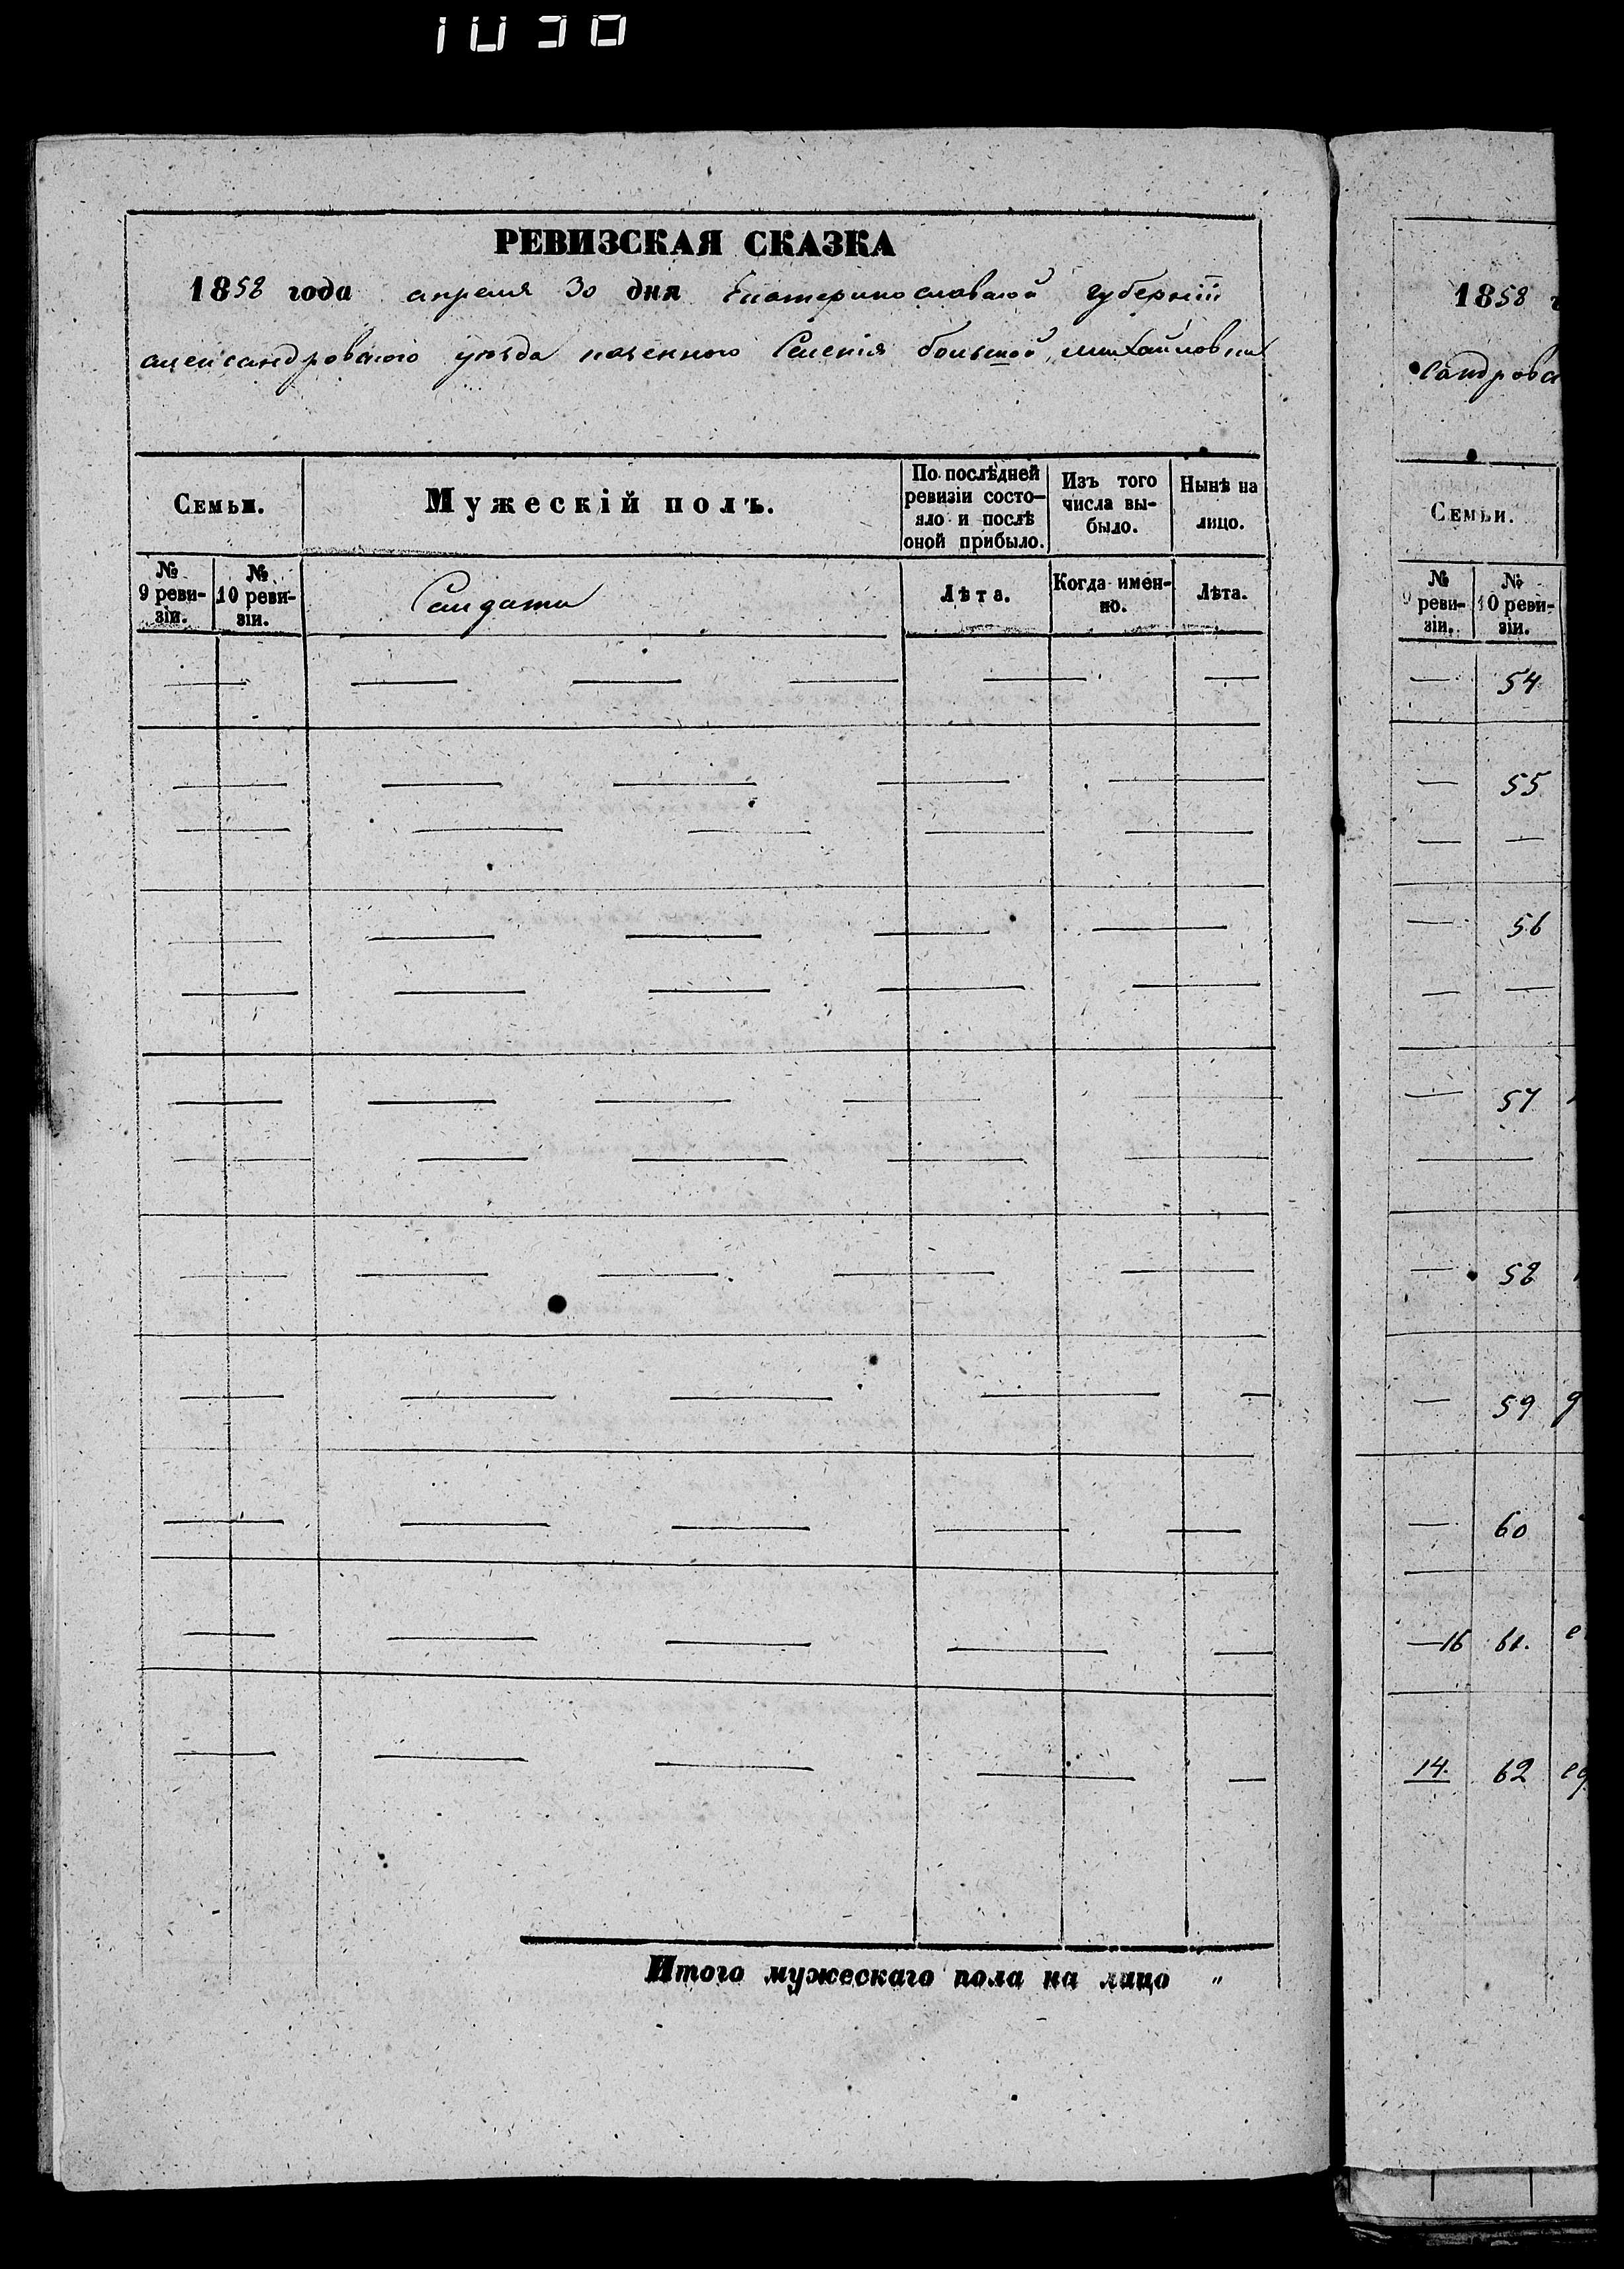 1038
РЕВИЗСКАЯ СКАЗКА
1858 года апреля 30 дня Екатеринославской губерніи
александровского уезда казенного Селенія большой михайловки
Семьи.
Мужескій полъ.
По послѣдней ревизіи состо-
яло и послѣ оной прибыло.
Изъ того числа вы-
было.
Нынѣ на лицо.
№ 9 реви-
зіи.
№ 10 реви-
зіи.
Салдати
Лѣта.
Когда имен-
но.
Лѣта.
Итого мужескаго пола на лицо "
1858
сандровс
Семьи.
№ 9 реви-
зіи.
№ 10 реви-
зіи.
— 54
— 55
— —
— 56
— —
— 57
—
— 58
— 59
— 60
—16 61.
14. 62